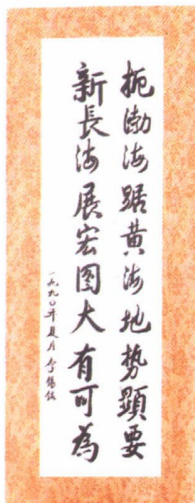 扼渤海踞黄海地势顯要
新長海展宏图大有可為
一九九〇年夏月